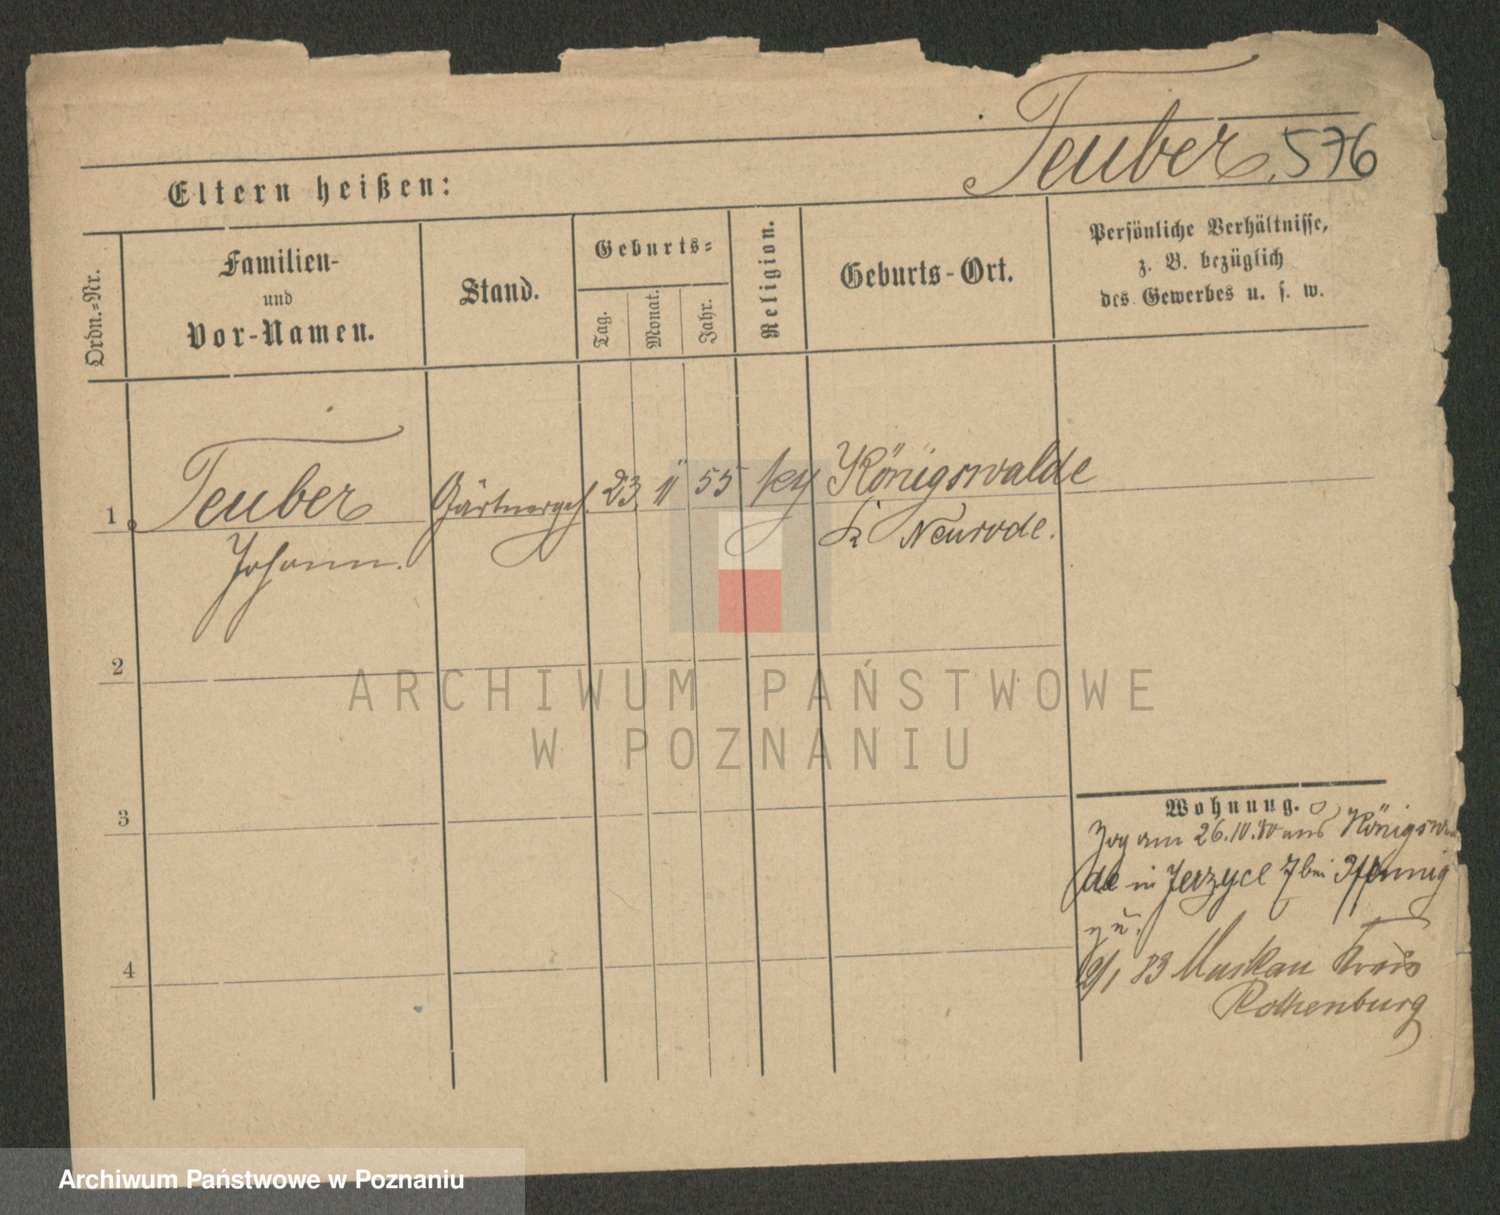 Teuber, 576
Eltern heißen:
Ordn.-Nr.
Familien-
und
Vor-Namen.
Stand.
Geburts-
Tag.
Monat.
Jahr.
Religion.
Geburts-Ort.
Persönliche Verhältnisse,
z. B. bezüglich
des Gewerbes u. s. w.
1 Teuber Gärtnergeh. 23 11 55 Königswalde
Johann. Neurode.
2
3
4
Wohnung.
Zog am 26.10.80 aus Königswal
de in Jerzyce 7 bei Pfennig
zu.
2/1 83 Muskau Kreis
Rothenburg
ARCHIWUM PAŃSTWOWE
W POZNANIU
Archiwum Państwowe w Poznaniu